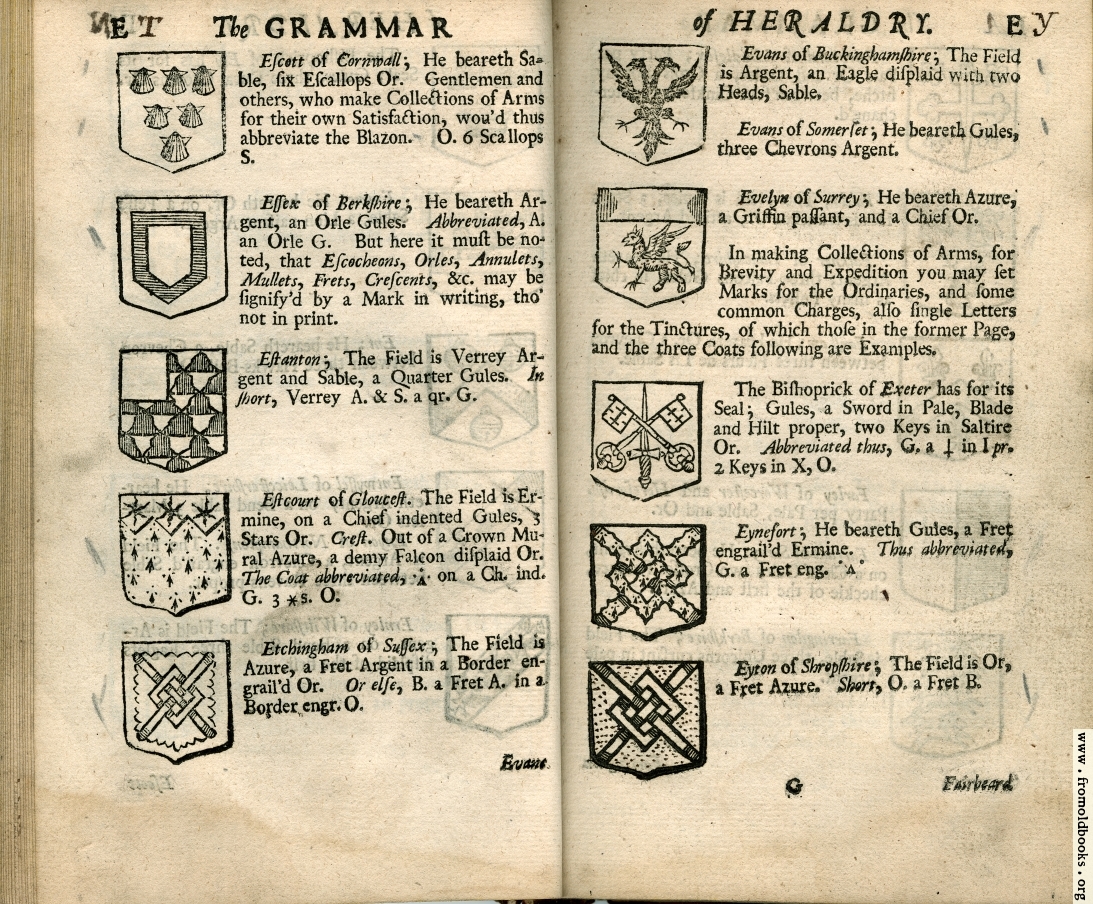 ET The GRAMMAR
Eſcott of Cornwall; He beareth Sa-
ble, ſix Eſcallops Or. Gentlemen and
others, who make Collections of Arms
for their own Satisfaction, wou'd thus
abbreviate the Blazon. O. 6 Scallops
S.
Eſſex of Berkſhire; He beareth Ar-
gent, an Orle Gules. Abbreviated, A.
an Orle G. But here it muſt be no-
ted, that Eſcocheons, Orles, Annulets,
Mullets, Frets, Creſcents, &c. may be
ſignify'd by a Mark in writing, tho'
not in print.
Eſtanton; The Field is Verrey Ar-
gent and Sable, a Quarter Gules. In
ſhort, Verrey A. & S. a qr. G.
Eſtcourt of Glouceſt. The Field is Er-
mine, on a Chief indented Gules, 3
Stars Or. Creſt. Out of a Crown Mu-
ral Azure, a demy Falcon diſplaid Or.
The Coat abbreviated, on a Ch. ind.
G. 3 *s. O.
Etchingham of Suſſex; The Field is
Azure, a Fret Argent in a Border en-
grail'd Or. Or elſe, B. a Fret A. in a
Border engr. O.
Evans
of HERALDRY. EY
Evans of Buckinghamſhire; The Field
is Argent, an Eagle diſplaid with two
Heads, Sable.
Evans of Somerſet; He beareth Gules,
three Chevrons Argent.
Evelyn of Surrey; He beareth Azure,
a Griffin paſſant, and a Chief Or.
In making Collections of Arms, for
Brevity and Expedition you may ſet
Marks for the Ordinaries, and ſome
common Charges, alſo ſingle Letters
for the Tinctures, of which thoſe in the former Page,
and the three Coats following are Examples.
The Biſhoprick of Exeter has for its
Seal; Gules, a Sword in Pale, Blade
and Hilt proper, two Keys in Saltire
Or. Abbreviated thus, G. a in I pr.
2 Keys in X, O.
Eynefort; He beareth Gules, a Fret
engrail'd Ermine. Thus abbreviated,
G. a Fret eng.
Eyton of Shropſhire; The Field is Or,
a Fret Azure. Short, O. a Fret B.
G Fairbeard
www.fromoldbooks.org